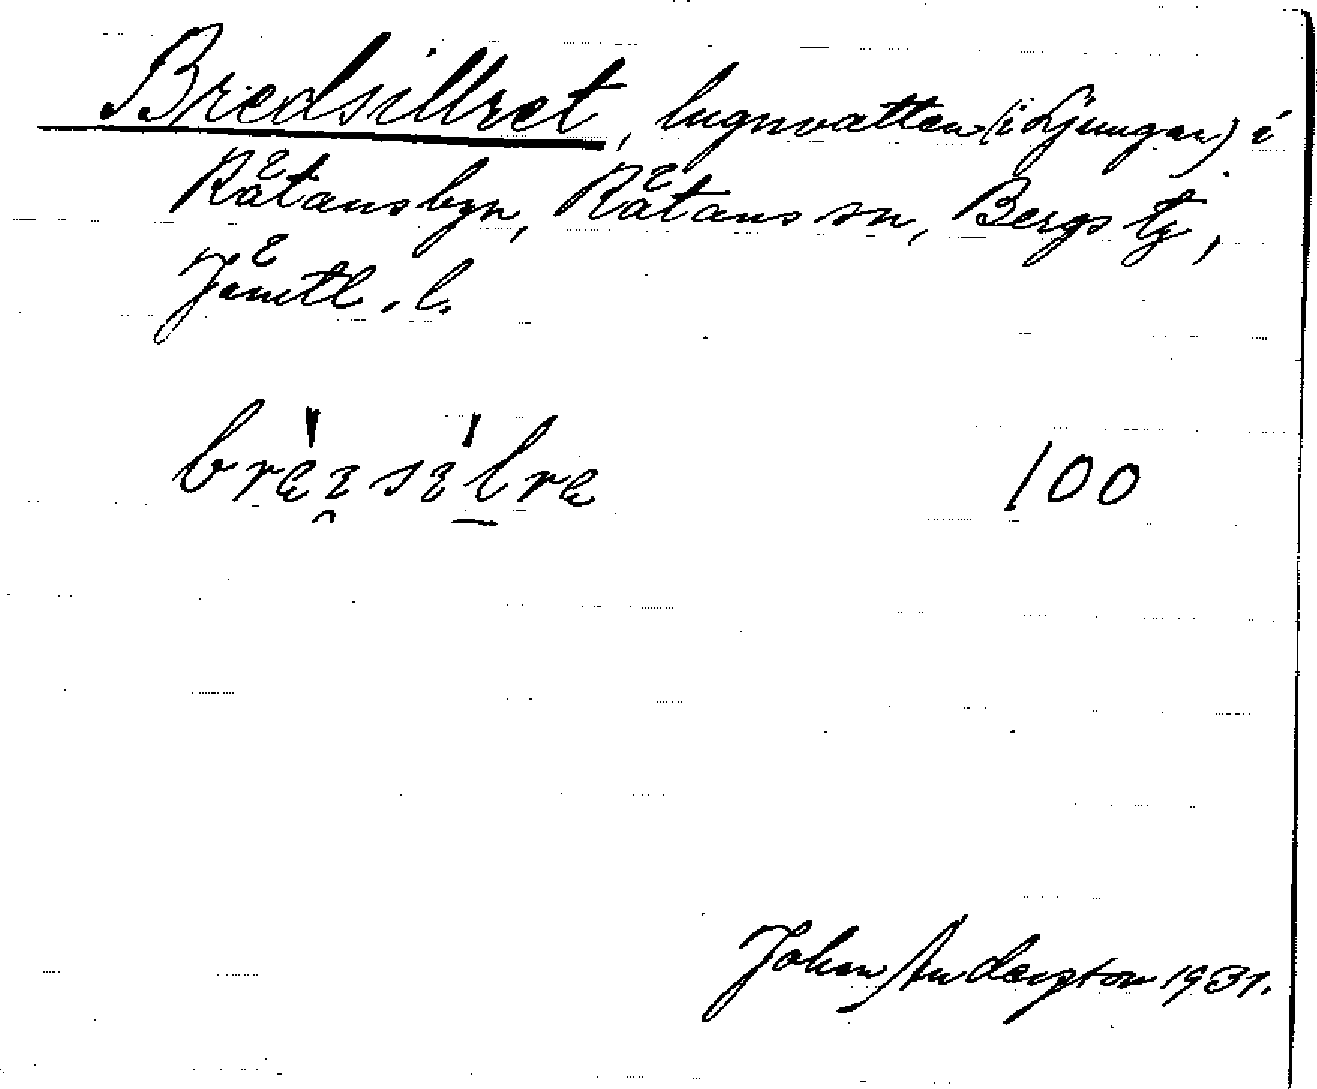 Bredsillret, lugnvatten (i Ljungan) i
Rätansbyn, Rätans sn, Bergs tg,
Jämtl. l.
100
John Anderston 1931.